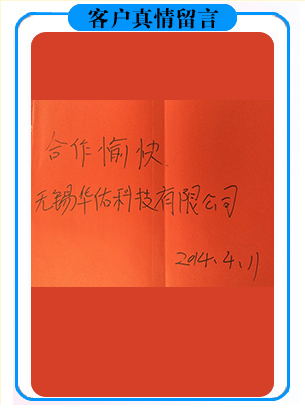 客户真情留言
合作愉快
无锡华佑科技有限公司
2014.4.11